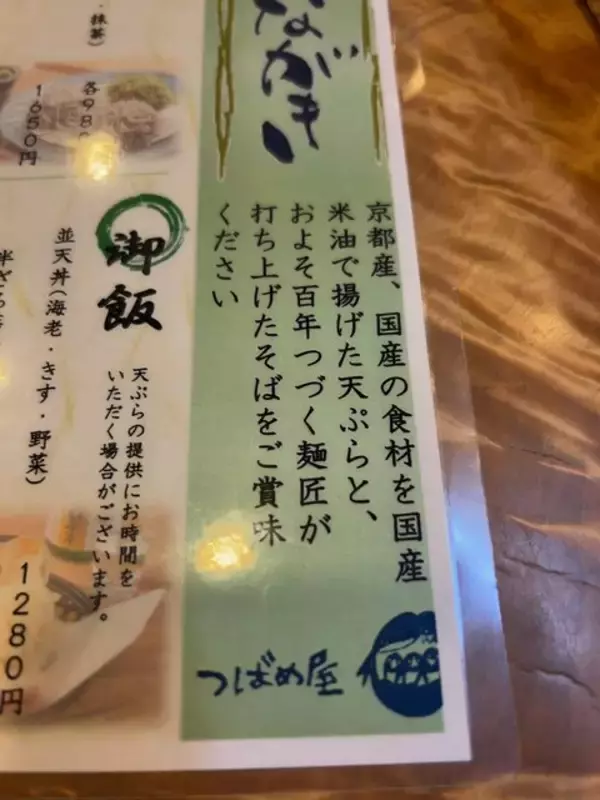 ながき
京都産、国産の食材を国産
米油で揚げた天ぷらと、
およそ百年つづく麺匠が
打ち上げたそばをご賞味
ください
つばめ屋
・抹茶)
各980
1650円
御飯
天ぷらの提供にお時間を
いただく場合がございます。
並天丼(海老・きす・野菜)
半ざる
1280円